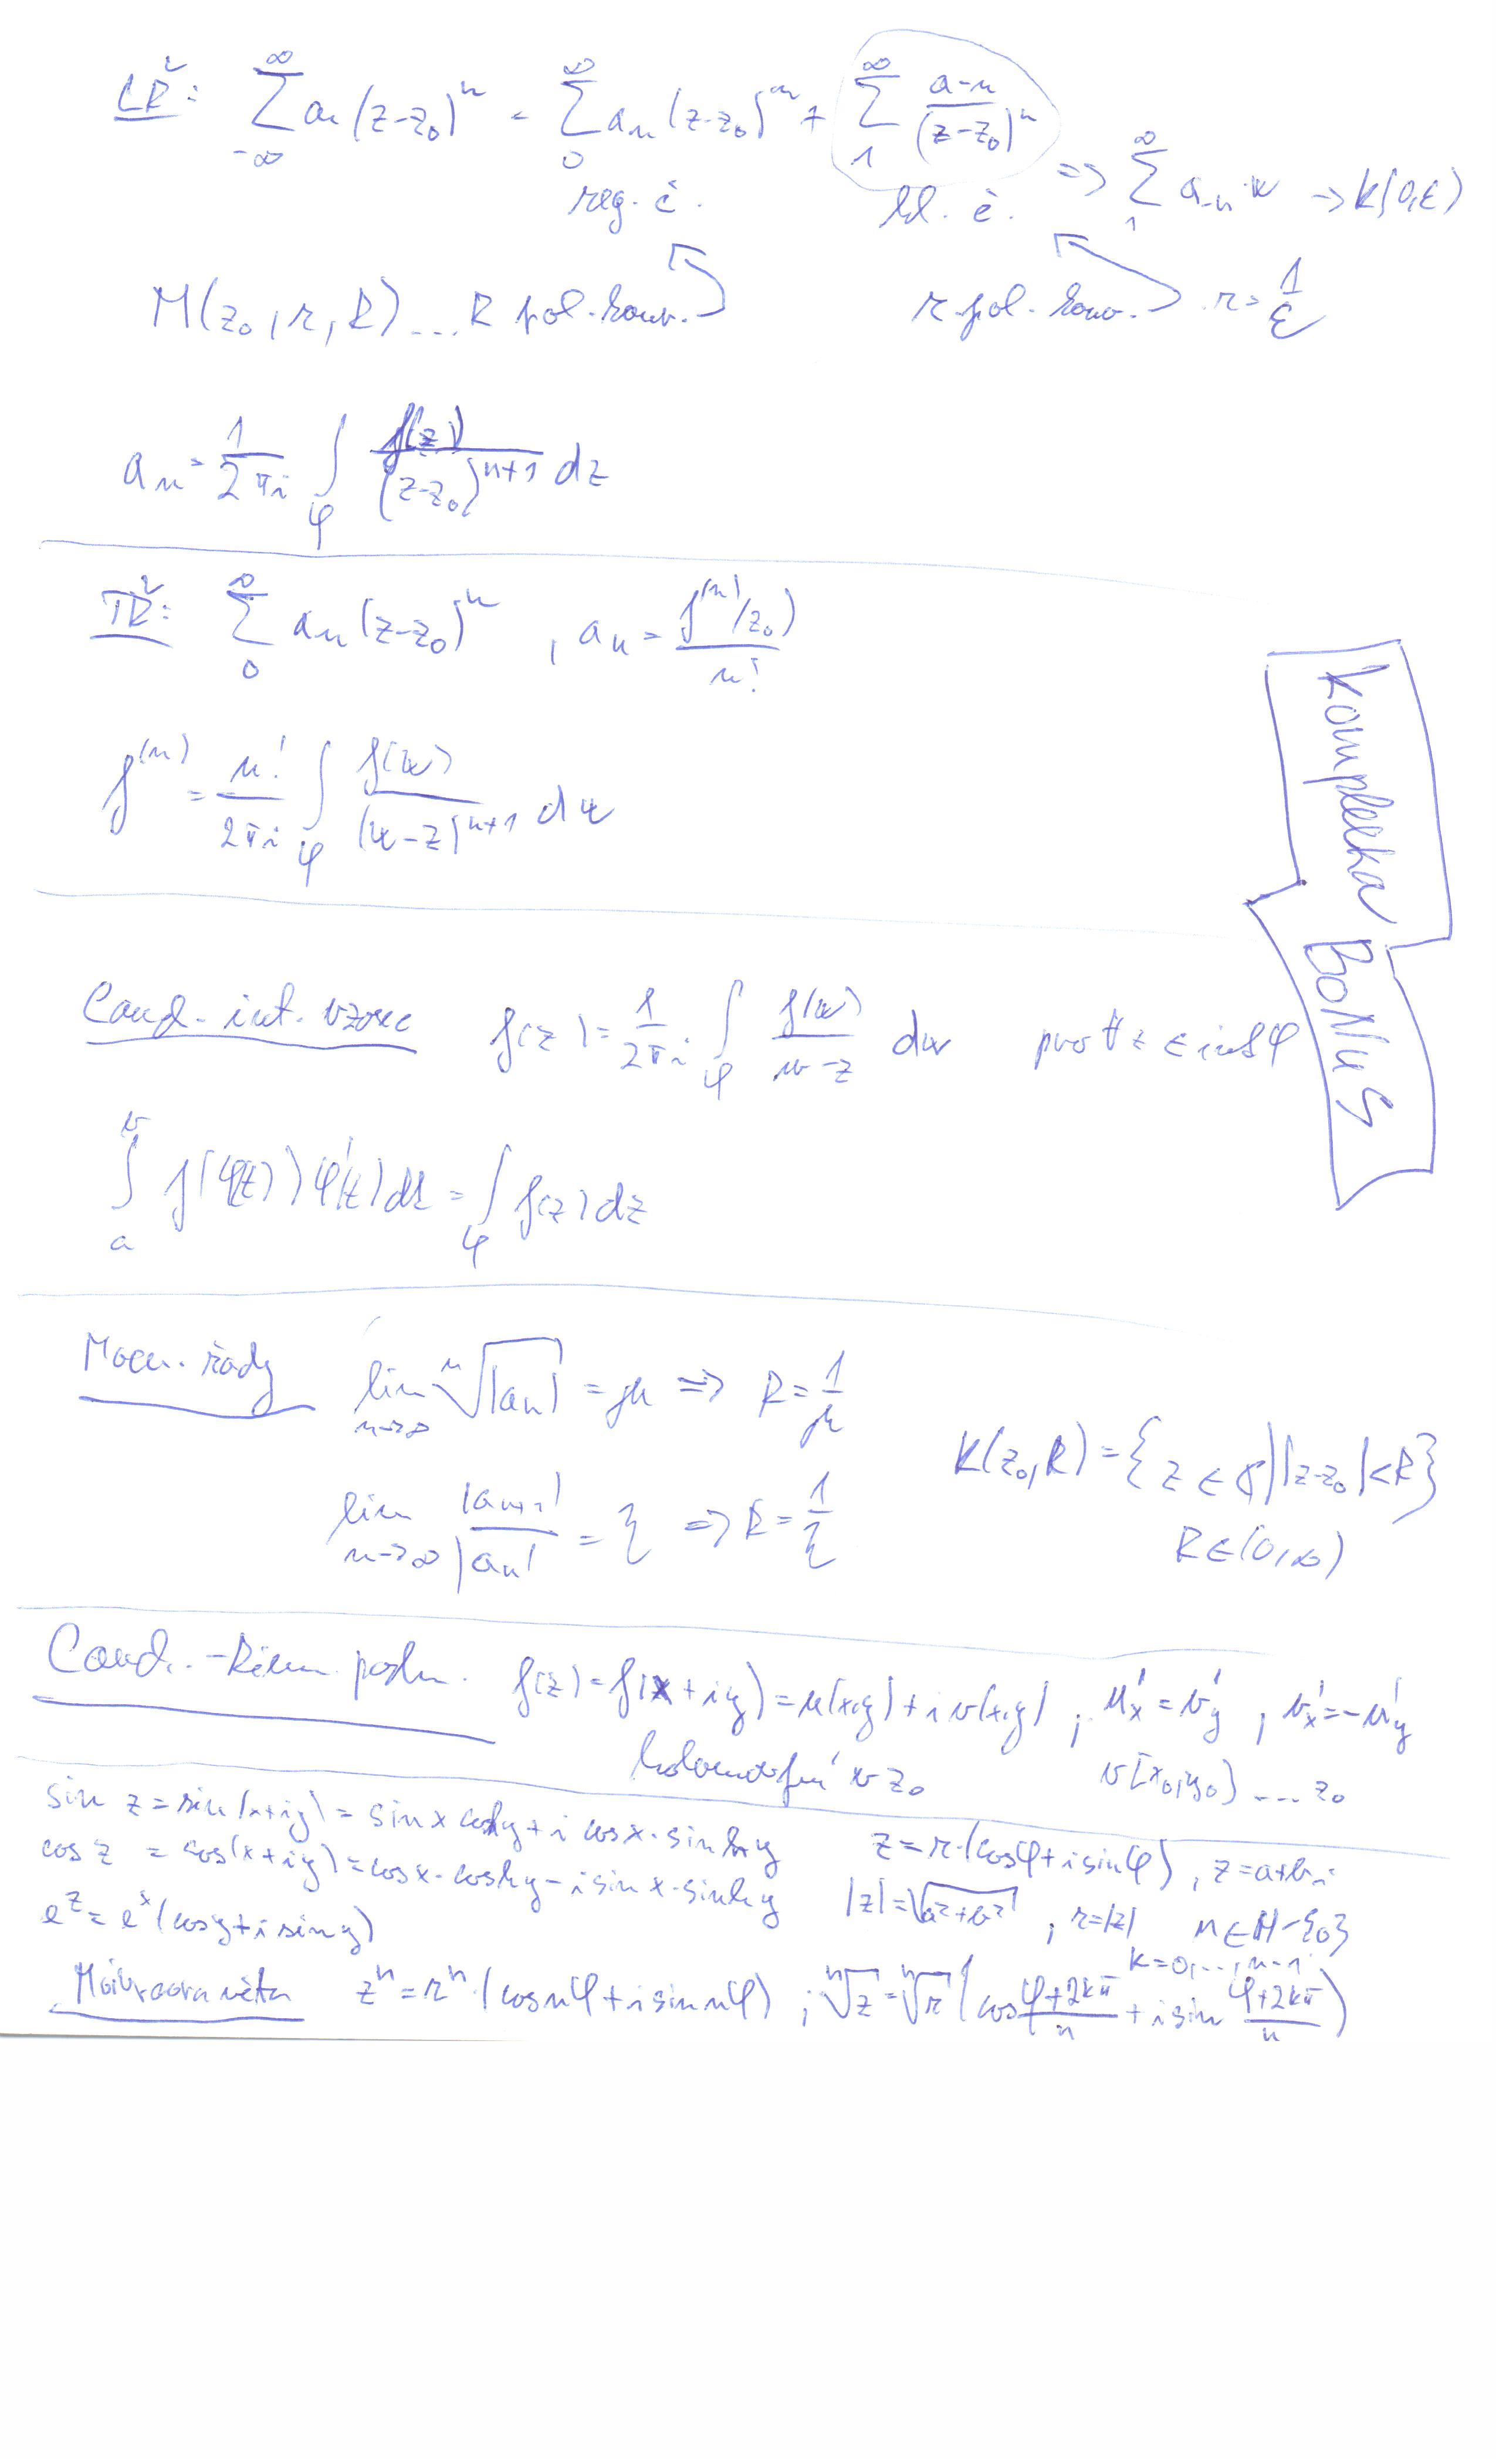 LŘ: ∑_{-∞}^{∞} a_n (z-z_0)^n = ∑_{0}^{∞} a_n (z-z_0)^n + ∑_{1}^{∞} a_{-n}/(z-z_0)^n ⇒ ∑_{1}^{∞} a_{-n} w → K(0,ε)
reg. č. hl. č.
M(z_0, r, R) ... R pol. konv. r pol. konv. r = 1/ε
a_n = 1/(2πi) ∫_φ f(z)/(z-z_0)^{n+1} dz
TŘ: ∑_{0}^{∞} a_n (z-z_0)^n , a_n = f^{(n)}(z_0)/n!
f^{(n)} = n!/(2πi) ∫_φ f(w)/(w-z)^{n+1} dw
Komplexka BONUS
Cauch. int. vzorec f(z) = 1/(2πi) ∫_φ f(w)/(w-z) dw pro ∀ z ∈ int φ
∫_a^b f(φ(t)) φ'(t) dt = ∫_φ f(z) dz
Mocn. řady lim_{n→∞} ⁿ√|a_n| = μ ⇒ R = 1/μ
K(z_0, R) = {z ∈ ℂ | |z-z_0| < R}
lim_{n→∞} |a_{n+1}|/|a_n| = ξ ⇒ R = 1/ξ
R ∈ (0, ∞)
Cauch.-Riem. podm. f(z) = f(x+iy) = u(x,y) + i v(x,y) ; u'_x = v'_y , v'_x = -u'_y
holomorfní v z_0 v [x_0, y_0] ... z_0
sin z = sin(x+iy) = sin x cosh y + i cos x · sinh y
cos z = cos(x+iy) = cos x · cosh y - i sin x · sinh y
e^z = e^x (cos y + i sin y)
z = r · (cos φ + i sin φ) , z = a+bi
|z| = √(a²+b²) , r = |z| n ∈ N - {0}
k = 0, ..., n-1
Moivreova věta z^n = r^n · (cos nφ + i sin nφ) ; ⁿ√z = ⁿ√r (cos (φ+2kπ)/n + i sin (φ+2kπ)/n)